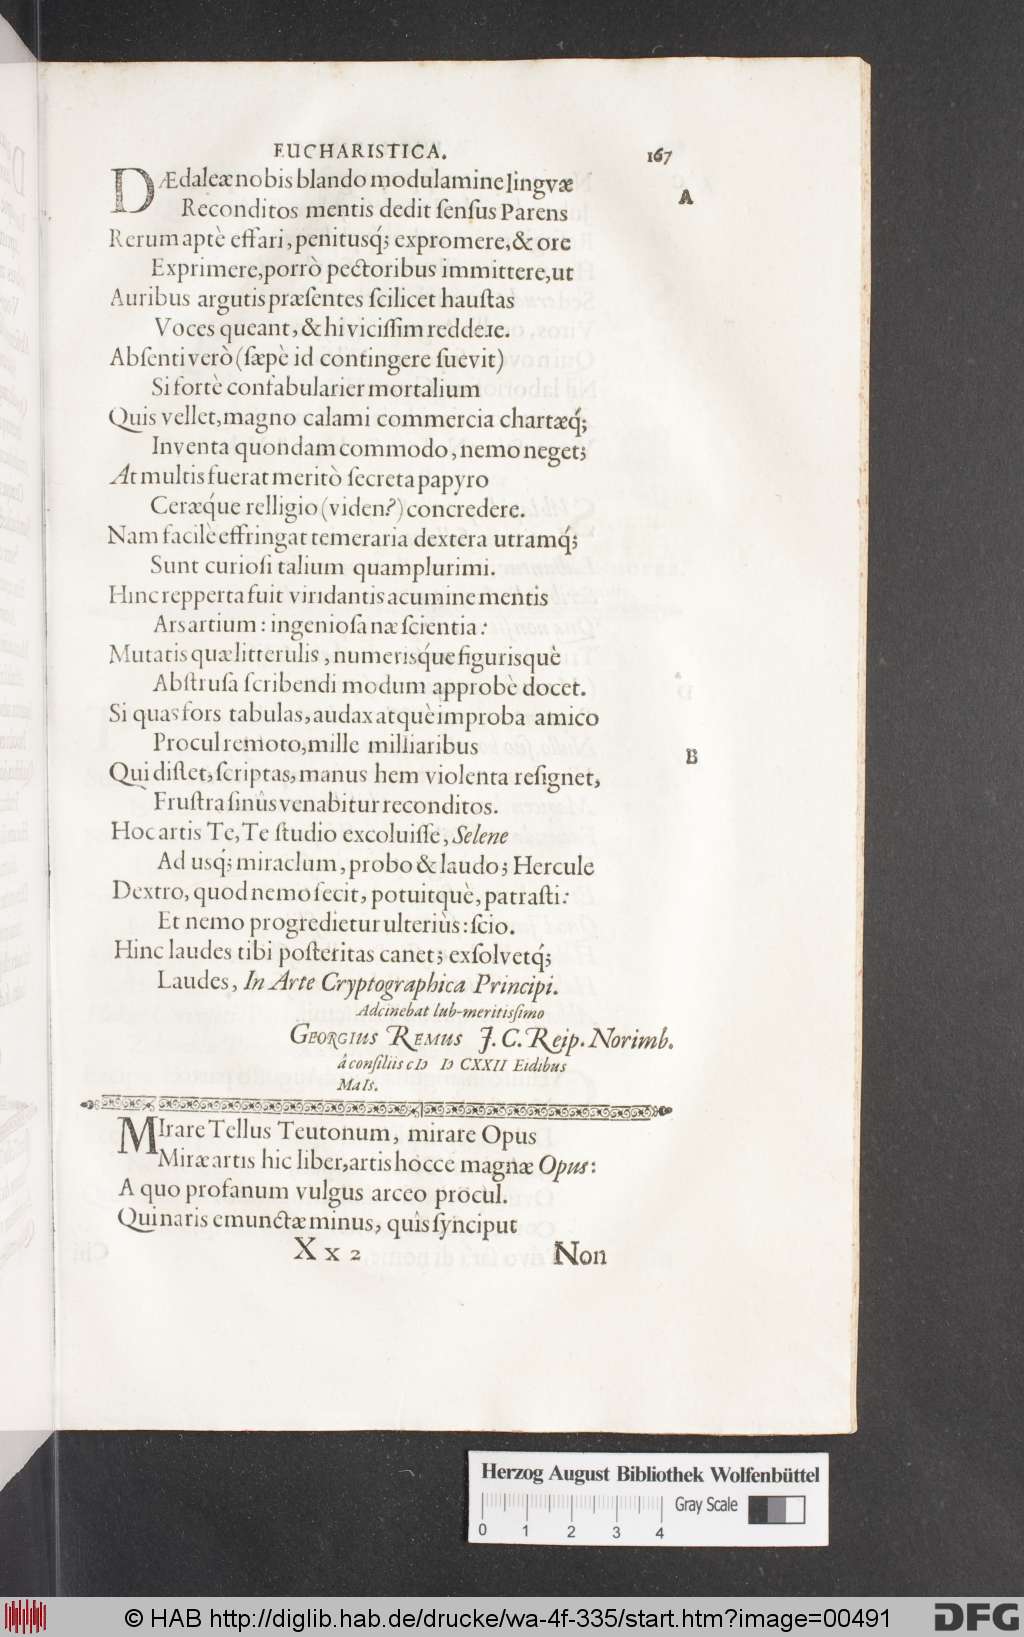 EUCHARISTICA. 167
A
DÆdaleæ nobis blando modulamine lingvæ
Reconditos mentis dedit ſenſus Parens
Rerum aptè effari, penitusq́; expromere, & ore
Exprimere, porrò pectoribus immittere, ut
Auribus argutis præſentes ſcilicet hauſtas
Voces queant, & hi viciſſim reddere.
Abſenti verò (ſæpè id contingere ſuevit)
Si fortè confabularier mortalium
Quis vellet, magno calami commercia chartæq́;
Inventa quondam commodo, nemo neget;
At multis fuerat meritò ſecreta papyro
Ceræq́ue relligio (viden?) concredere.
Nam facilè effringat temeraria dextera utramq́;
Sunt curioſi talium quamplurimi.
Hinc repperta fuit viridantis acumine mentis
Ars artium: ingenioſa næ ſcientia:
Mutatis quæ litterulis, numerisq́ue figurisquè
Abſtruſa ſcribendi modum approbè docet.
Si quas fors tabulas, audax atquè improba amico
Procul remoto, mille milliaribus
B
Qui diſtet, ſcriptas, manus hem violenta reſignet,
Fruſtra ſinûs venabitur reconditos.
Hoc artis Te, Te ſtudio excoluiſſe, Selene
Ad usq́; miraclum, probo & laudo; Hercule
Dextro, quod nemo fecit, potuitquè, patraſti:
Et nemo progredietur ulteriùs: ſcio.
Hinc laudes tibi poſteritas canet; exſolvetq́;
Laudes, In Arte Cryptographica Principi.
Adcinebat lub-meritiſſimo
GEORGIUS REMUS J. C. Reip. Norimb.
â conſiliis cIↃ IↃ CXXII Eidibus
MaIs.
MIrare Tellus Teutonum, mirare Opus
Miræ artis hic liber, artis hocce magnæ Opus:
A quo profanum vulgus arceo procul.
Qui naris emunctæ minus, quîs ſynciput
X x 2 Non
Herzog August Bibliothek Wolfenbüttel
Gray Scale
0 1 2 3 4
© HAB http://diglib.hab.de/drucke/wa-4f-335/start.htm?image=00491 DFG